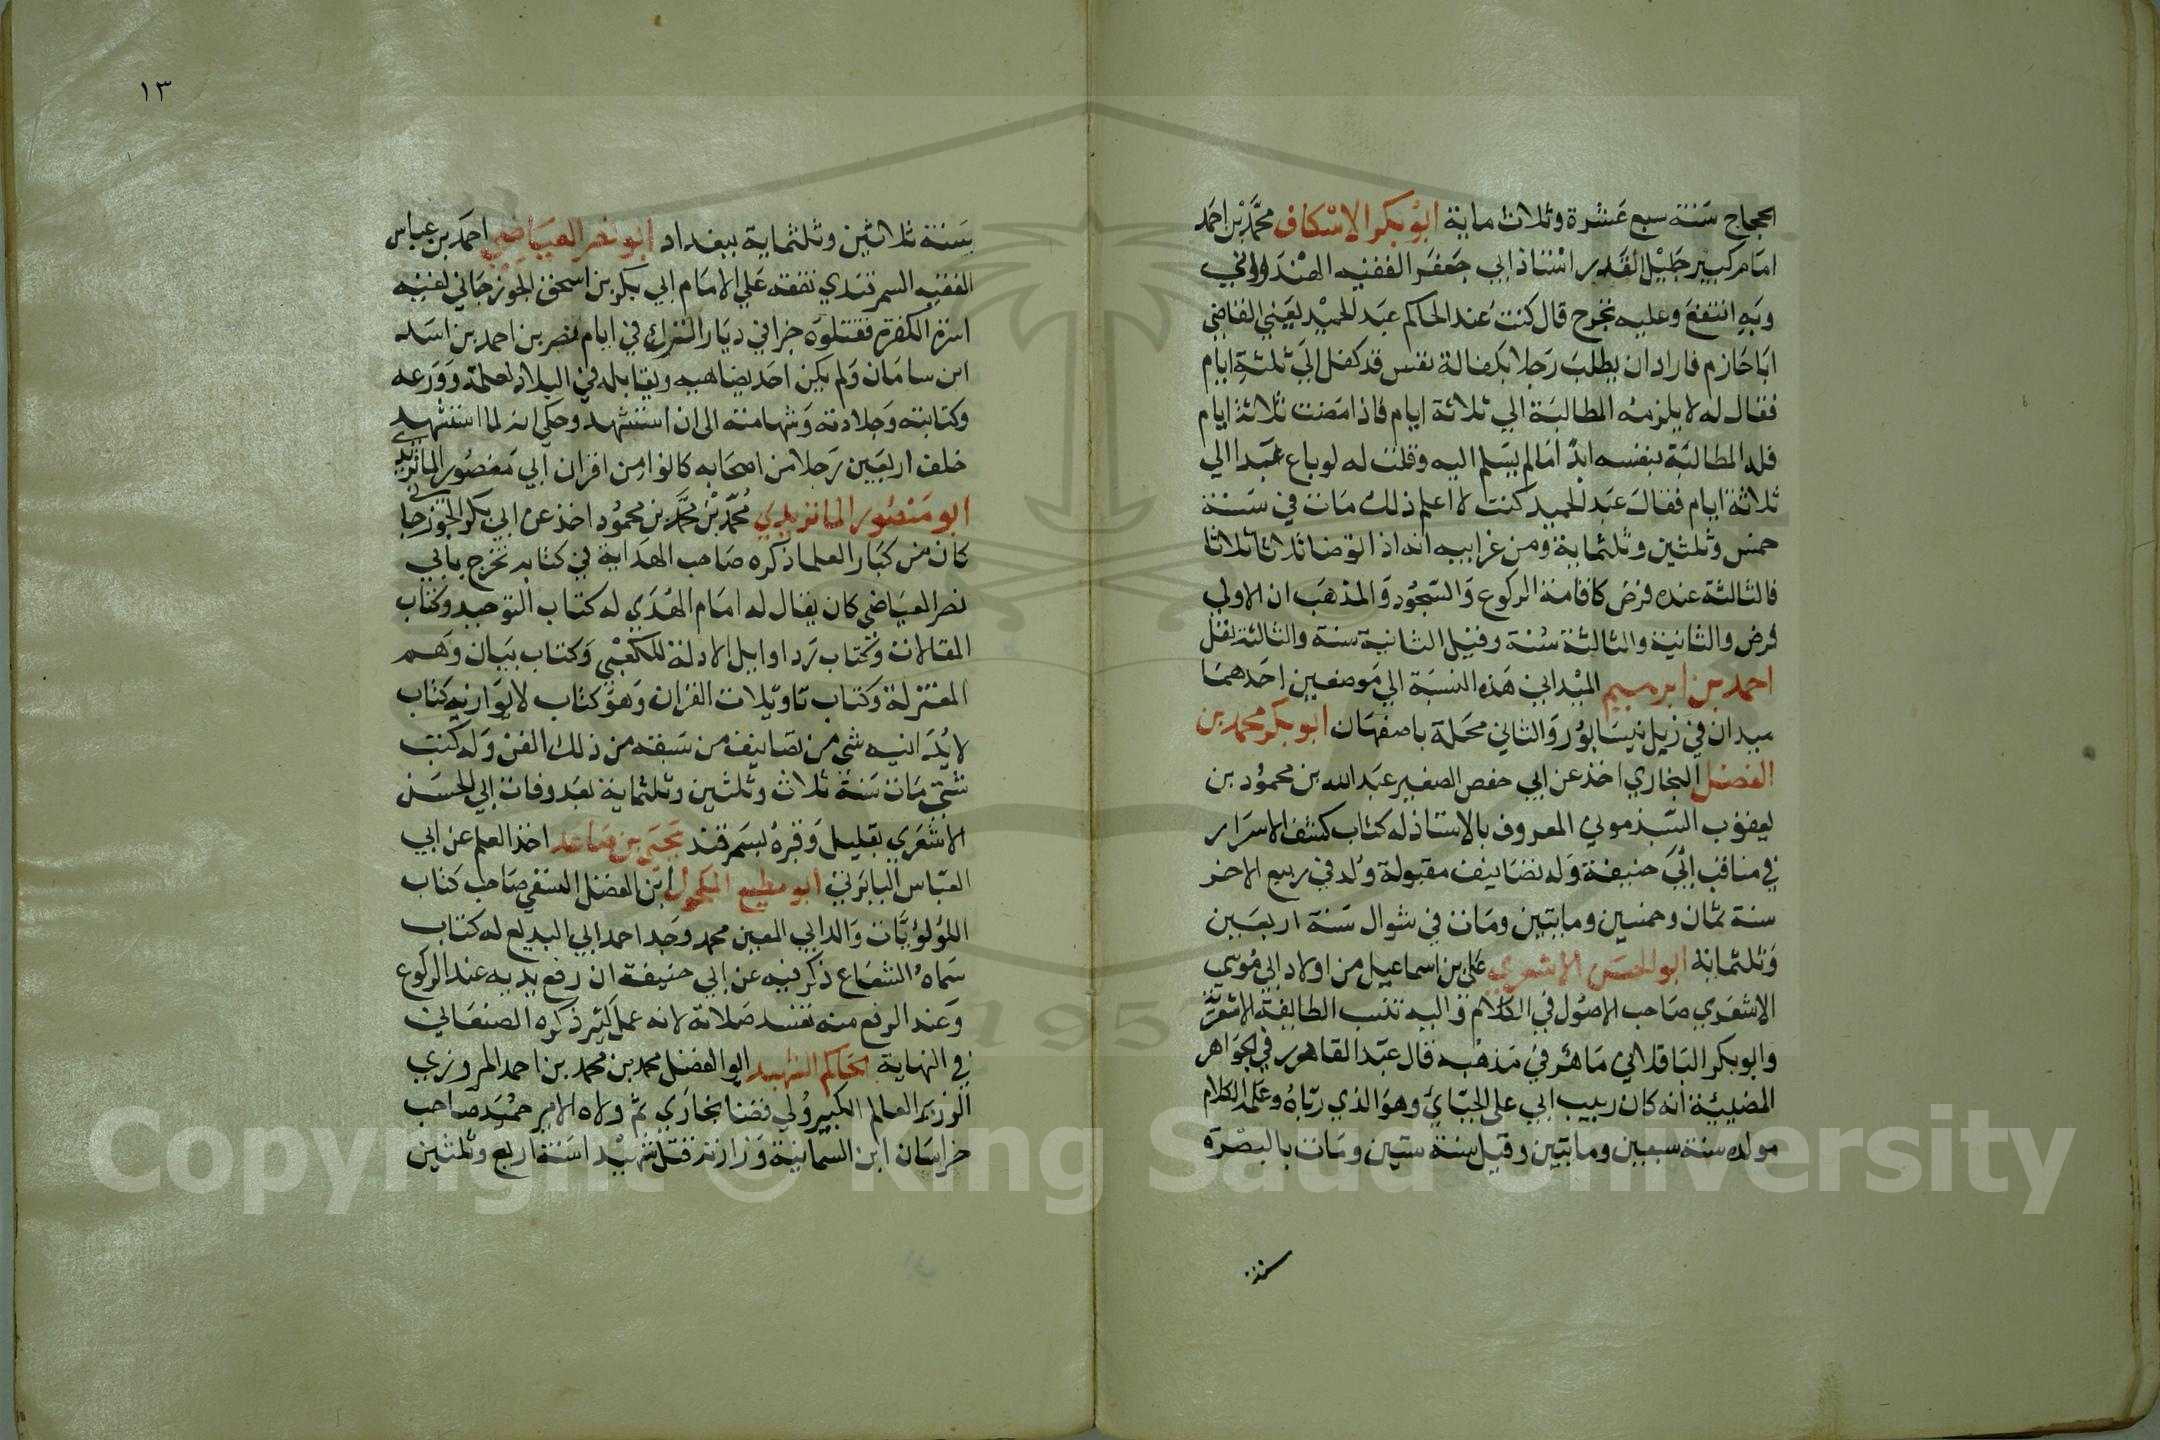 الحجاج سنة سبع عشرة وثلاث ماية ابو بكر الاسكاف محمد بن احمد
امام كبير جليل القدر استاذ ابي جعفر الفقيه الهندواني
وبه انتفع وعليه تخرج قال كنت عند الحاكم عبد الحميد يعني القاضي
ابا حازم فاراد ان يطلب رجلا بكفالة نفس قد كفل الي ثلثة ايام
فقال له لا يلزمه المطالبة الي ثلاثة ايام فاذا مضت ثلاثة ايام
فله المطالبة بنفسه ابدا ما لم يسلم اليه وقلت له لو باع عبدا الي
ثلاثة ايام فقال عبد الحميد كنت لا اعلم ذلك مات في سنة
خمس وثلثين وثلثماية ومن غرايبه انه اذا توضا ثلاثا ثلاثا
فالثالثة عنده فرض كاقامة الركوع والسجود والمذهب ان الاولي
فرض والثانية والثالثة سنة وقيل الثانية سنة والثالثة نفل
احمد بن ابرهيم الميداني هذه النسبة الي موضعين احدهما
ميدان في زيل نيسابور والثاني محلة باصفهان ابو بكر محمد بن
الفضل البخاري اخذ عن ابي حفص الصغير عبد الله بن محمود بن
يعقوب السبذموني المعروف بالاستاذ له كتاب كشف الاسرار
في مناقب ابي حنيفة وله تصانيف مقبولة ولد في ربيع الاخر
سنة ثمان وخمسين ومايتين ومات في شوال سنة اربعين
وثلثمائة ابو الحسن الاشعري علي بن اسماعيل من اولاد ابي موسي
الاشعري صاحب الاصول في الكلام واليه تنسب الطايفة الاشعرية
وابو بكر الباقلاني ماهر في مذهبه قال عبد القاهر في الجواهر
المضيئة انه كان ربيب ابي علي الجبائي وهو الذي رباه وعلمه الكلام
مولده سنة سبعين ومايتين وقيل سنة ستين ومات بالبصرة
سنة
١٣
سنة ثلاثين وثلثماية ببغداد ابو نصر العياضي احمد بن عباس
الفقيه السمرقندي تفقه علي الامام ابي بكر بن اسحق الجوزجاني لفيه
اسره الكفرة فقتلوه في ديار الترك في ايام نصر بن احمد بن اسد
ابن سامان ولم يكن احد يضاهيه ويقابله في البلاد لعلمه وورعه
وكتابته وجلادته وشهامته الى ان استشهد وحكي انه لما استشهد
خلف اربعين رجلا من اصحابه كانوا من اقران ابي منصور الماتريدي
ابو منصور الماتريدي محمد بن محمد بن محمود اخذ عن ابي بكر الجوزجاني
كان من كبار العلما ذكره صاحب الهداية في كتابه تخرج بابي
نصر العياضي كان يقال له امام الهدي له كتاب التوحيد وكتاب
المقالات وكتاب رد اوايل الادلة للكعبي وكتاب بيان وهم
المعتزلة وكتاب تاويلات القران وهو كتاب لا يوازيه كتاب
لا يدانيه شي من تصانيف من سبقه من ذلك الفن وله كتب
شتي مات سنة ثلاث وثلثين وثلثماية بعد وفاة ابي الحسن
الاشعري بقليل وقبره بسمرقند يحيى بن صاعد اخذ العلم عن ابي
العباس البابرتي ابو مطيع المكحول ابن الفضل النسفي صاحب كتاب
اللؤلؤيات والد ابي المعين محمد وجد احمد ابي البديع له كتاب
سماه الشعاع ذكر فيه عن ابي حنيفة ان رفع يديه عند الركوع
وعند الرفع منه تفسد صلاته لانه عمل كثير ذكره الصنعاني
في النهاية الحاكم الشهيد ابو الفضل محمد بن محمد بن احمد المروزي
الوزير العالم الكبير ولي قضا بخاري ثم ولاه الامير حميد صاحب
خراسان ابن السمانية وزارته قتل شهيدا سنة اربع وثلثين
Copyright © King Saud University
1957